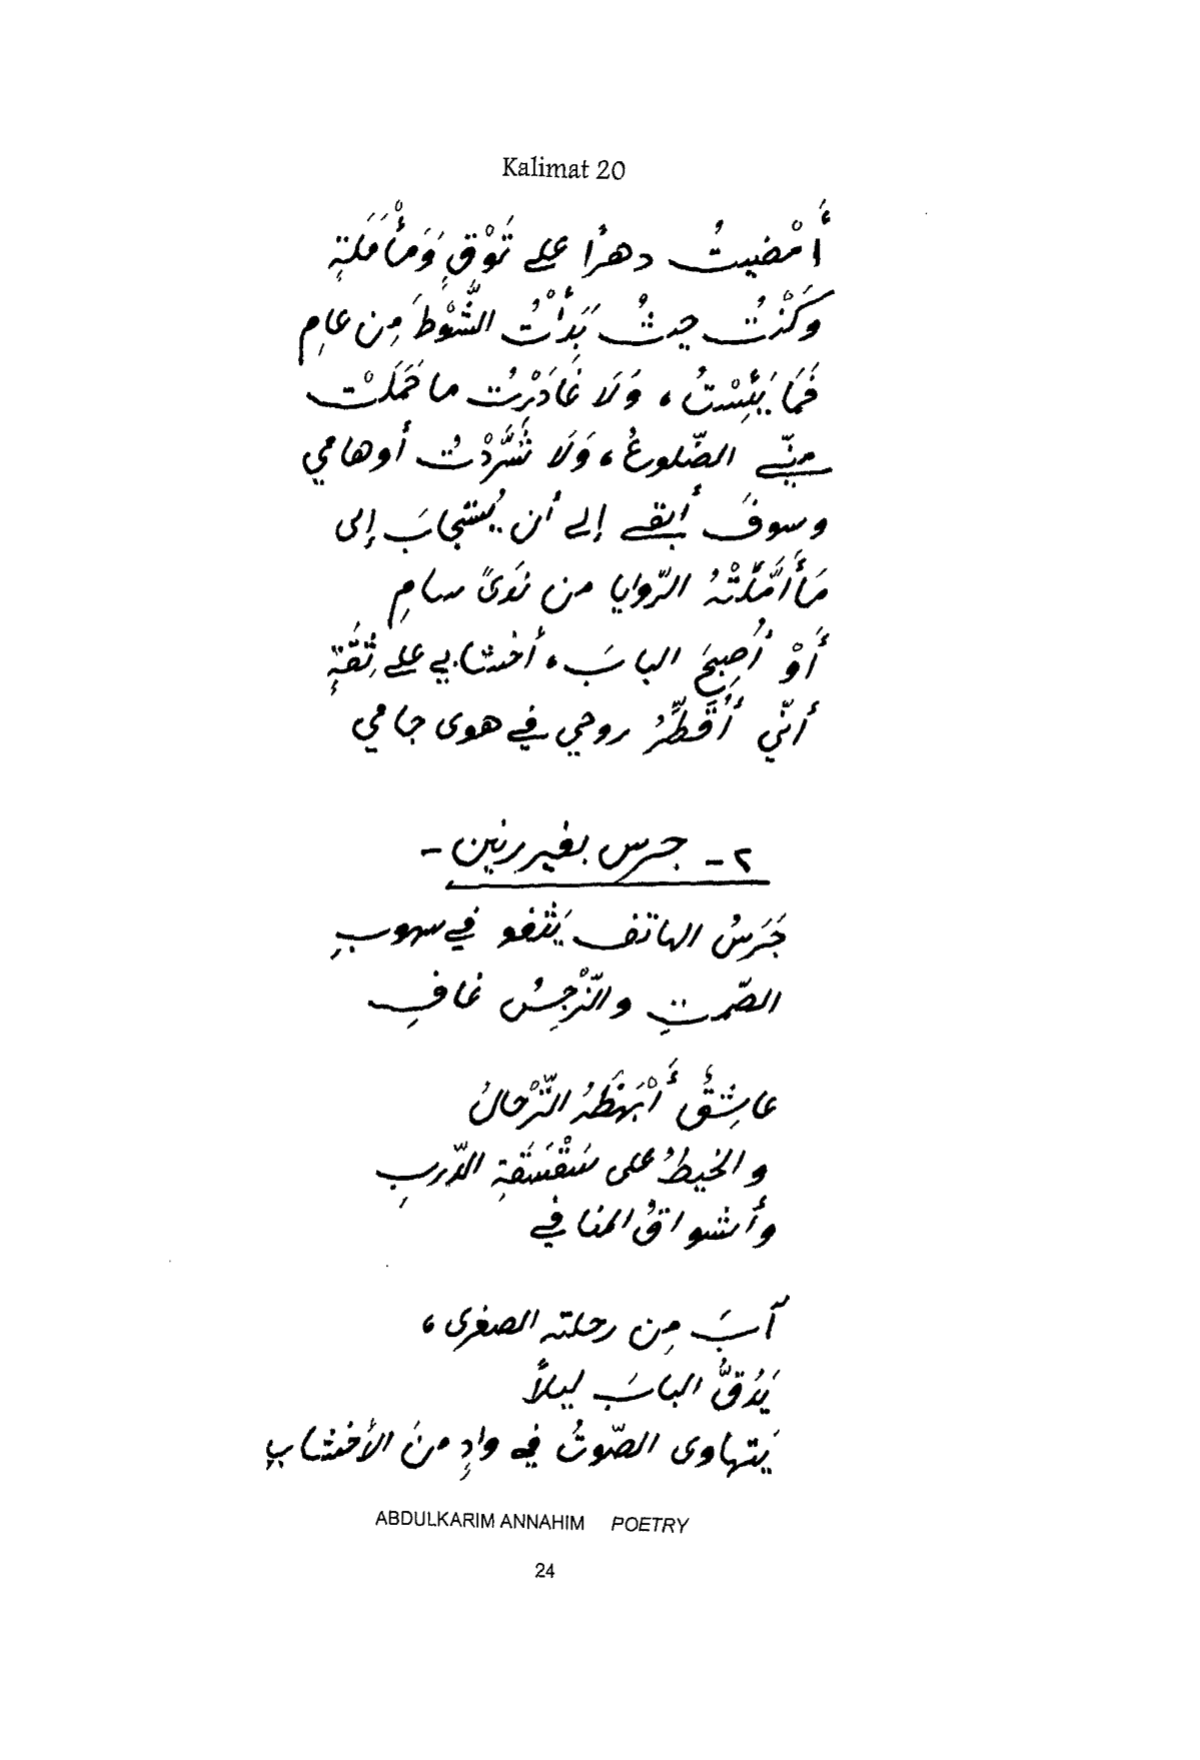 Kalimat 20
أَمْضيتُ دهراً على تَوْقٍ وَمَأْمَلَةٍ
وَكُنْتُ حيثُ بَدَأْتُ الشَّوْطَ مِن عامِ
فَمَا يَئِسْتُ، وَلَا غَادَرْتُ ما حَمَلَتْ
منّي الضّلوعُ، وَلَا شَرَّدْتُ أوهامي
وسوفَ أبقى إلى أن يُستجابَ إلى
مَا أَمَّلَتْهُ الرّوايا من نَدىً سامِ
أَوْ أُصبِحَ البابَ، أخشابي على ثِقَةٍ
أنّي أُقَطِّرُ روحي في هوى جامي
٢ - جرس بغير رنين -
جَرَسُ الهاتف يَثغو في سهوبِ
الصّمتِ والنّرْجِسُ غافِ
عاشِقٌ أَبْهَظَهُ التّرْحالُ
والخيطُ على سَقْسَقَةِ الدّربِ
وأشواقُ المنافي
آبَ مِن رحلته الصغرى،
يَدُقُّ البابَ ليلاً
يَتهاوى الصّوتُ في وادٍ منَ الأخشابِ
ABDULKARIM ANNAHIM POETRY
24